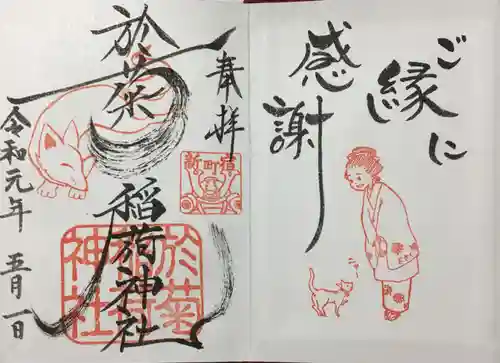 ご縁に
感謝
奉拝
於菊
稲荷神社
新町宿
於菊
稲荷
神社
令和元年 五月一日